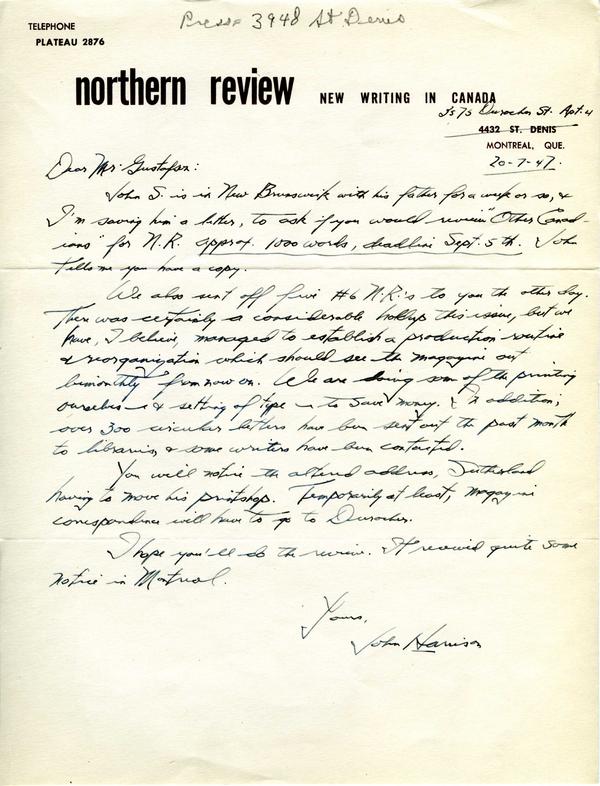 Press 3948 St Denis
TELEPHONE
PLATEAU 2876
northern review NEW WRITING IN CANADA
3575 Durocher St. Apt. 4
4432 ST. DENIS
MONTREAL, QUE.
20-7-47.
Dear Mr. Gustafson:
John S. is in New Brunswick with his father for a week or so, &
I'm saving him a letter, to ask if you would review Other Canad-
ians" for N.R. approx. 1000 words, deadline Sept. 5th. John
tells me you have a copy.
We also sent off five #6 N.R.'s to you the other day.
There was certainly a considerable holdup this issue, but we
have, I believe, managed to establish a production routine
& reorganization which should see the magazine out
bimonthly from now on. We are doing some of the printing
ourselves & setting of type to save money. In addition,
over 300 circular letters have been sent out the past month
to libraries, & some writers have been contacted.
You will notice the altered address, Sutherland
having to move his printshop. Temporarily at least, magazine
correspondence will have to go to Durocher.
I hope you'll do the review. It received quite some
notice in Montreal.
Yours,
John Harrison